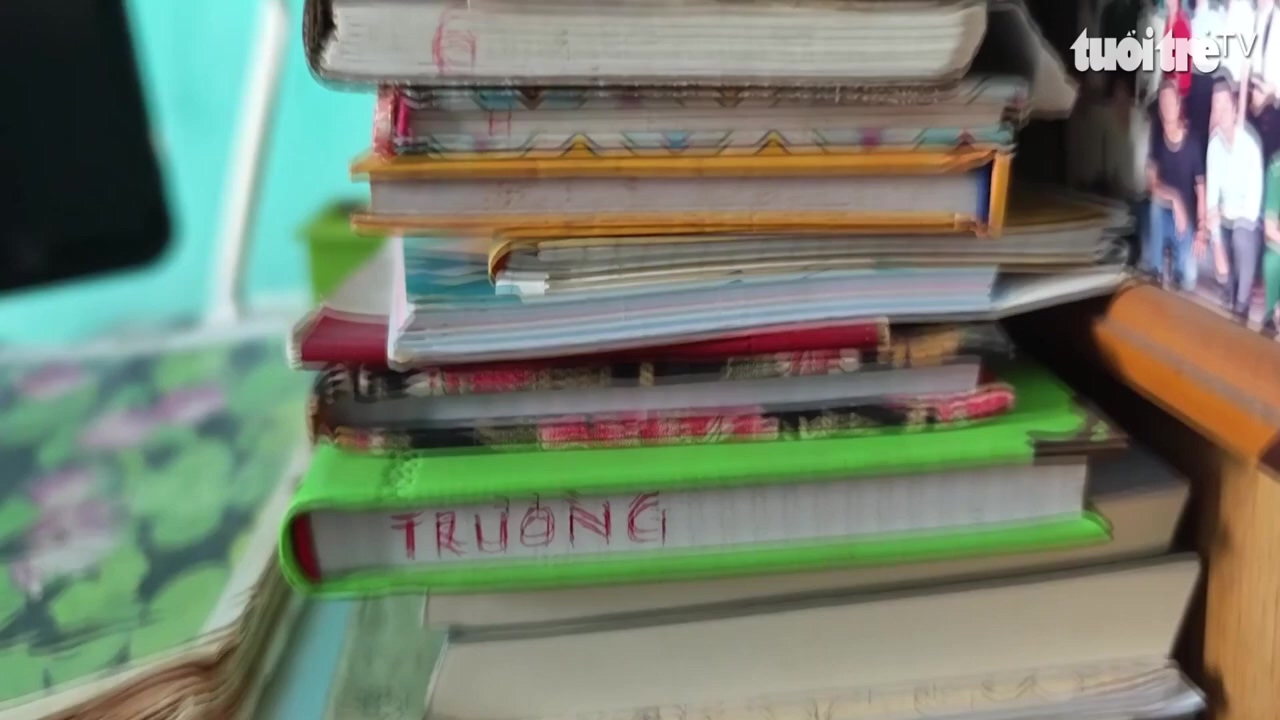 tuổi trẻ TV
TRƯỜNG